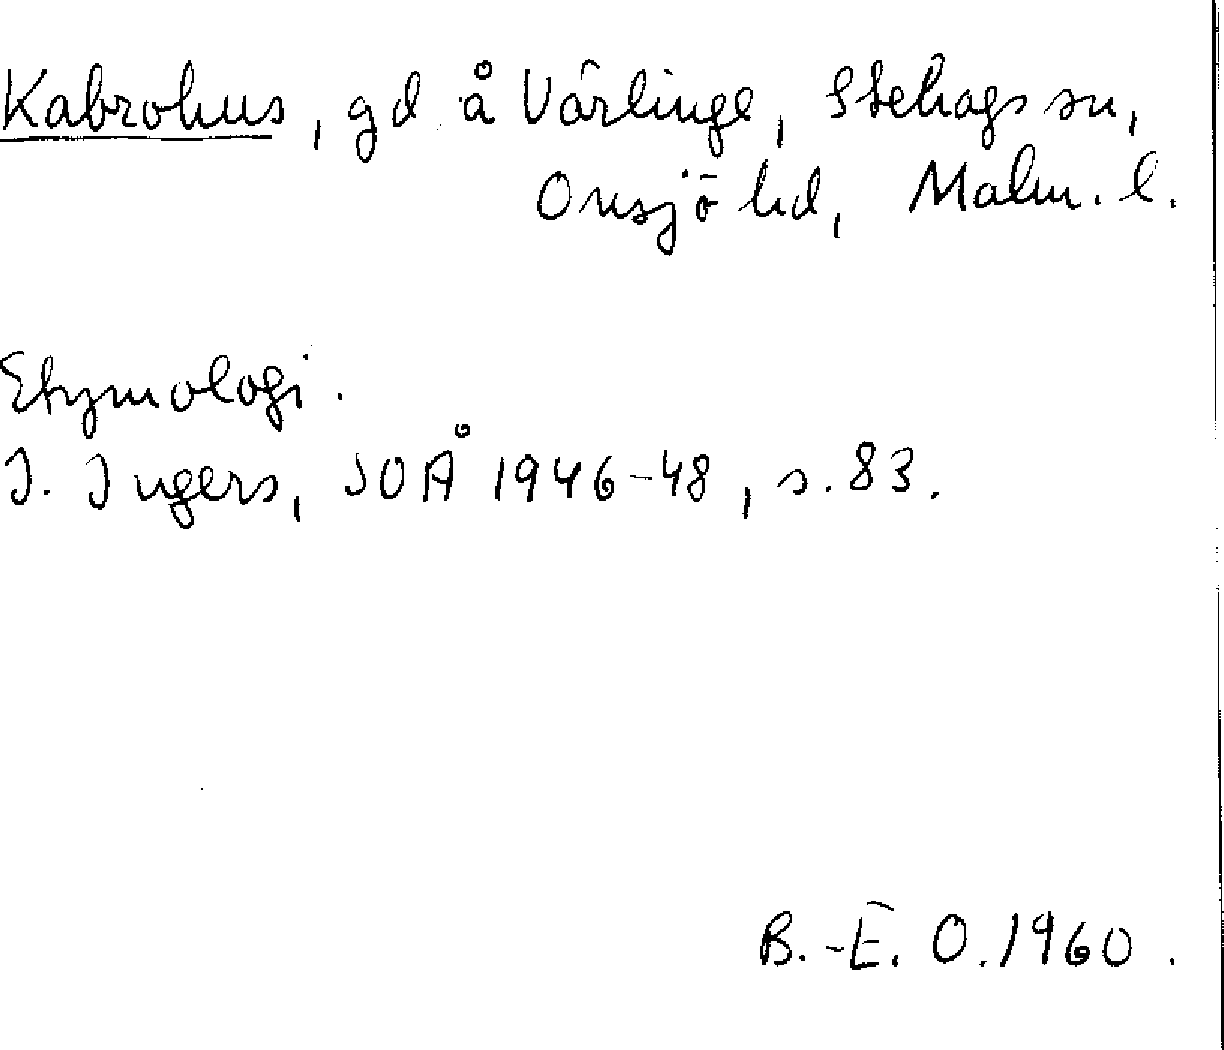 Kabrohus, gd å Vårlinge, Stehags sn,
Onsjö hd, Malm. l.
Etymologi.
I. Ingers, SOÅ 1946-48, s. 83.
B.-E. O. 1960.